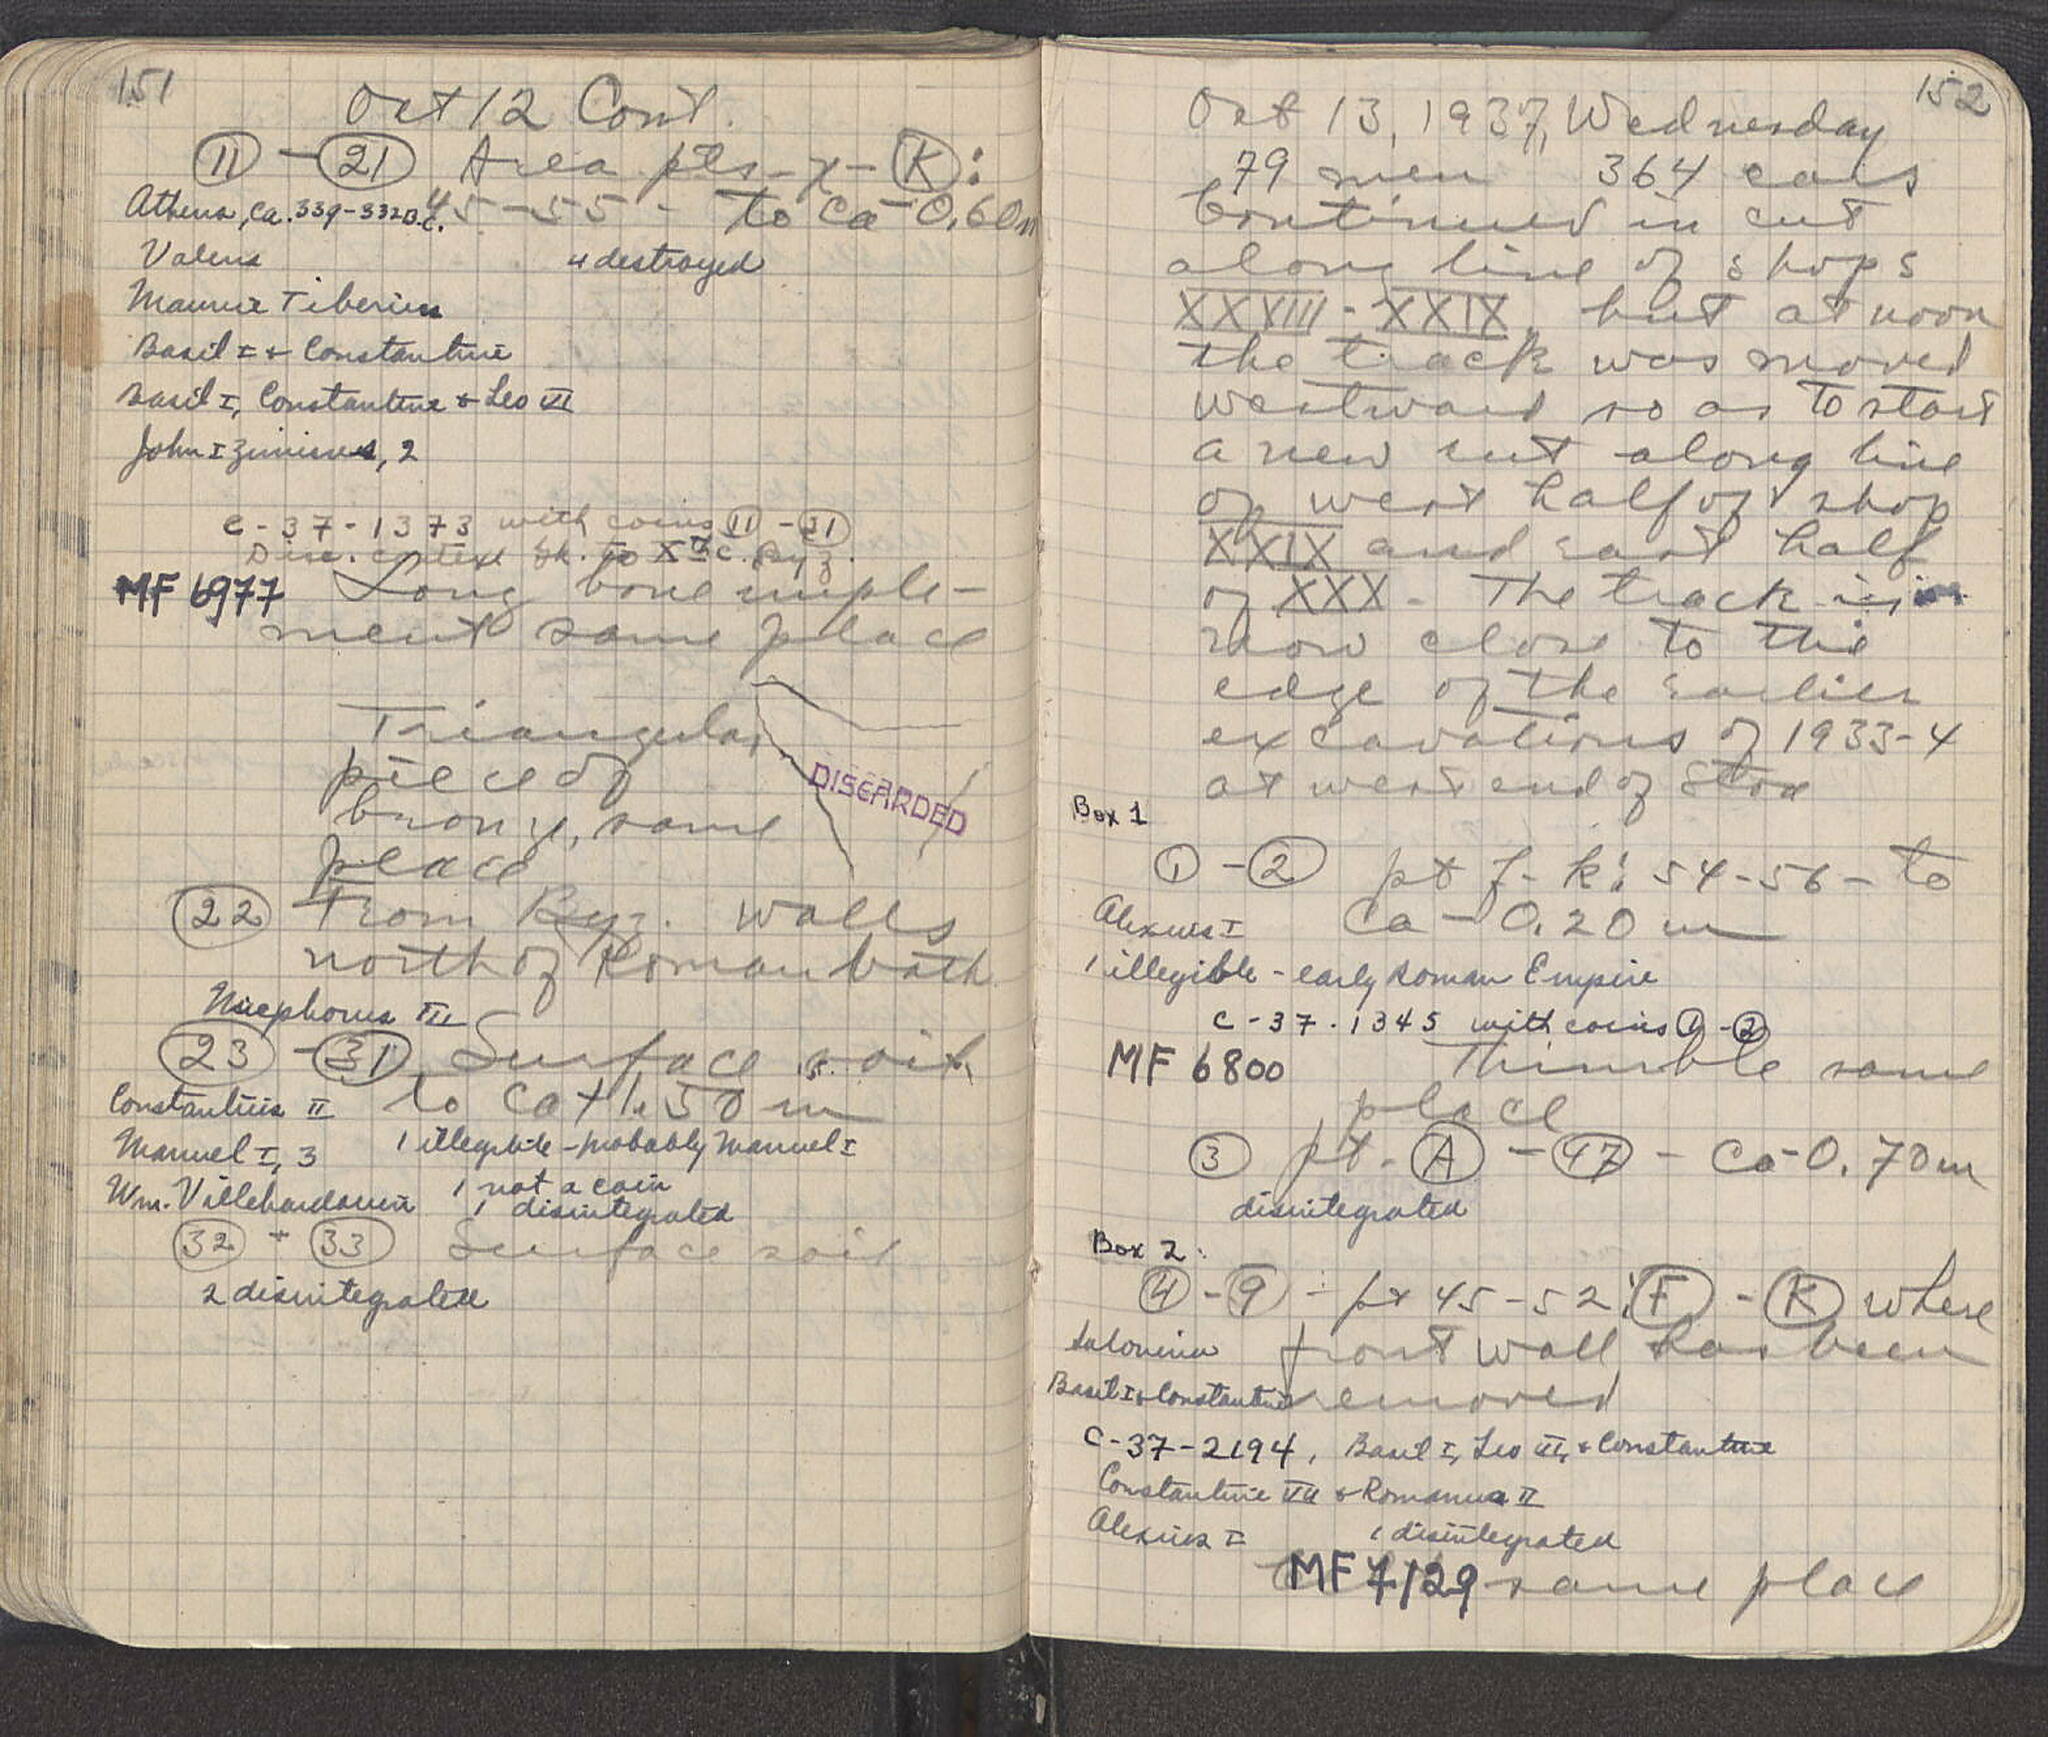 151
Oct 12 Cont.
11 - 21 Area pts - x - K:
45 - 55 - to ca - 0.60m
Athens, ca. 339-332 B.C.
Valens 4 destroyed
Maurice Tiberius
Basil I + Constantine
Basil I, Constantine + Leo VI
John I Zimisces, 2
C-37-1373 with coins 11 - 21
Disc. context Gk. to Xth c. Byz.
MF 6977 Long bone imple-
ment same place
Triangular
piece of
bronze, same
place
DISCARDED
22 From Byz. walls
north of Roman bath
Nicephorus III
23 - 31 Surface soil
to ca + 1.50 m
Constantius II
Manuel I, 3 1 illegible - probably Manuel I
1 not a coin
Wm. Villehardouin 1 disintegrated
32 + 33 Surface soil
2 disintegrated
152
Oct 13, 1937, Wednesday
79 men 364 cars
Continued in cut
along line of shops
XXVIII - XXIX, but at noon
the track was moved
westward so as to start
a new cut along line
of west half of shop
XXIX and east half
of XXX. The track is
now close to the
edge of the earlier
excavations of 1933-4
at west end of Stoa
Box 1
1 - 2 pt f - k: 54-56 - to
ca - 0.20 m
Alexius I
1 illegible - early Roman Empire
C-37-1345 with coins 1 - 2
MF 6800 Thimble same
place
3 pt. A - 47 - ca - 0.70m
disintegrated
Box 2:
4 - 9 - pt 45-52: F - K where
front wall has been
removed
Salonina
Basil I + Constantine
C-37-2194, Basil I, Leo VI, + Constantine
Constantine VII + Romanus II
Alexius I 1 disintegrated
MF 7129 same place